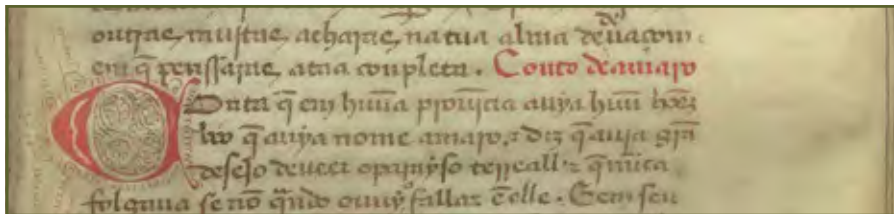 outras muytas acharas na tua alma deuaçom
em q̃ penssaras, a tua conpleta. Conto de amaro
Conta q̃ em hũua prouĩcia auya huũ hom̃e
boo q̃ auya nome amaro. z diz q̃ auya grã
deseJo de ueer o parayso terreall z q̃ nũca
folgaua se nõ q̃ndo ouuyo fallar ẽ elle. Sem seu